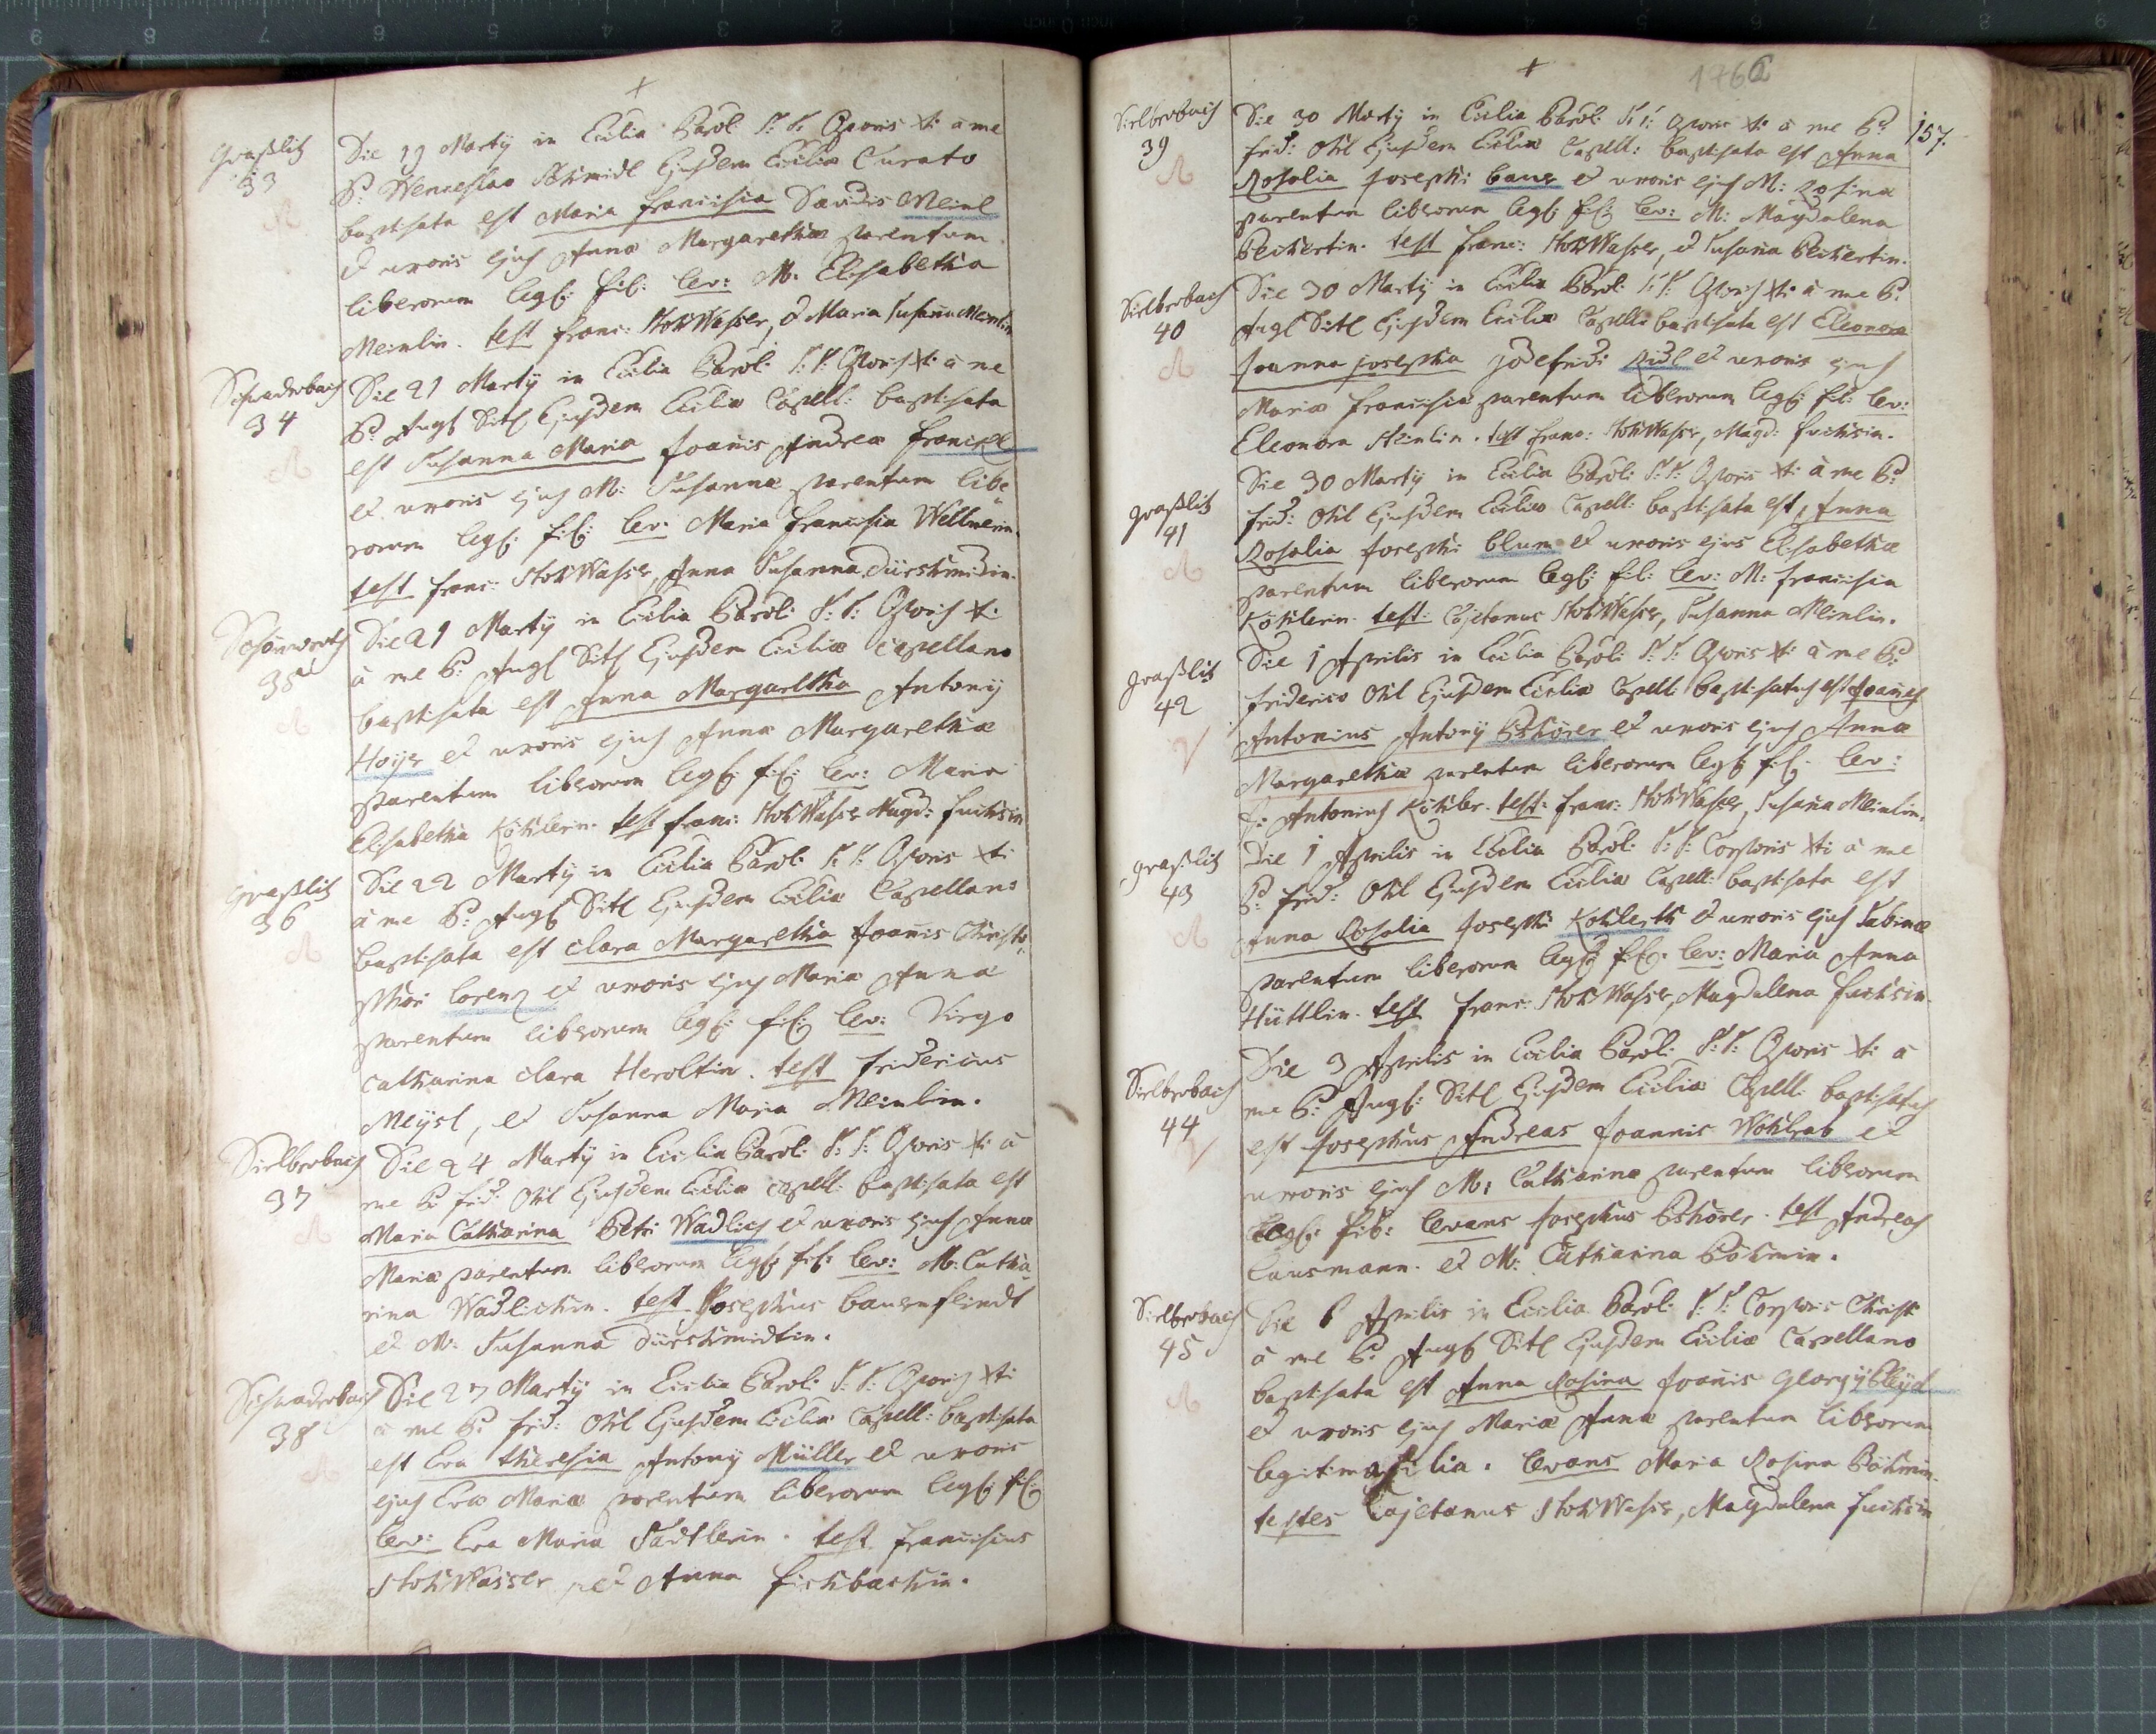 +
Graßlitz
33
Die 19 Martÿ in Ecclia Parol: S: S: Cporis Xti à me
P: Wenceslao Schmidl Ejusdem Eccliæ Curato
baptisata est Maria francisca Davidis Meinl
et uxoris ejus Annæ Margarethæ parentum
liberorum legl: fil: lev: M: Elisabetha
Meinlin. test franc: StohWasser, et Maria Susana Meinlin
Schwaderbach
34
Die 21 Martÿ in Ecclia Parol: S: S: Cporis Xti à me
P: Augl Ditl Ejusdem Eccliæ Capell: baptisata
est Susanna Maria Joanis Andreæ franckl
et uxoris ejus M: Susannæ parentum libe
rorum legl: fil: lev: Maria francisca Wellnerin.
test franc: StohWasser, Anna Susanna Dürschmidin.
Schönwerth
35
Die 21 Martÿ in Ecclia Parol: S: S: Cporis Xti
à me P: Augl Ditl Ejusdem Eccliæ Capellano
baptisata est Anna Margaretha Antonÿ
Hoÿer et uxoris ejus Annæ Margarethæ
parentum liberorum legl: fil: lev: Maria
Elisabetha Köhlerin. test franc: StohWasser Magd: fuchsin
Graßlitz
36
Die 22 Martÿ in Ecclia Parol: S: S: Cporis Xti
à me P: Augl Ditl Ejusdem Eccliæ Capellano
baptisata est Clara Margaretha Joanis Christo
phori Lorenz et uxoris ejus Mariæ Annæ
parentum liberorum legl: fil: lev: Virgo
Catharina Clara Heroltin. test fridericus
Meÿsl, et Susanna Maria Meinlin.
Silberbach
37
Die 24 Martÿ in Ecclia Parol: S: S: Cporis Xti à
me P: frid: Ohl Ejusdem Eccliæ Capell: baptisata est
Maria Catharina Petri Wadlich et uxoris ejus Annæ
Mariæ parentum liberorum legl: fil: lev: M: Catha
rina Wadlichin. test Josephus bauernfeindt
et M: Susanna Dürschmidtin.
Schwaderbach
38
Die 27 Martÿ in Ecclia Parol: S: S: Cporis Xti
à me P: frid: Ohl Ejusdem Eccliæ Capell: baptisata
est Eva theresia Antonÿ Müller et uxoris
ejus Evæ Mariæ parentum liberorum legl: fil:
lev: Eva Maria Sattlerin. test franciscus
StohWasser, et Anna fischbachin.
+
1762
157.
Silberbach
39
Die 30 Martÿ in Ecclia Parol: S: S: Cporis Xti à me P:
frid: Ohl Ejusdem Eccliæ Capell: baptisata est Anna
Rosalia Josephi baur et uxoris ejus M: Rosinæ
parentum liberorum legl: fil: lev: M: Magdalena
Peckertin. test franc: StohWasser, et Susana Peckertin.
Silberbach
40
Die 30 Martÿ in Ecclia Parol: S: S: Cporis Xti à me P:
Augl Ditl Ejusdem Eccliæ Capell: baptisata est Eleonora
Joanna Josepha Godefridi Riedl et uxoris ejus
Mariæ franciscæ parentum liberorum legl: fil: lev:
Eleonora Steinlin. test franc: StohWasser, Magd: fuchsin.
Graßlitz
41
Die 30 Martÿ in Ecclia Parol: S: S: Cporis Xti à me P:
frid: Ohl Ejusdem Eccliæ Capell: baptisata est, Anna
Rosalia Josephi blum et uxoris ejus Elisabethæ
parentum liberorum legl: fil: lev: M: francisca
Köhlerin. test: Cajetanus StohWasser, Susanna Meinlin.
Graßlitz
42
Die 1 Aprilis in Ecclia Parol: S: S: Cporis Xti à me P:
friderico Ohl Ejusdem Eccliæ Capell: baptisatus est Joanes
Antonius Antonÿ Pshörer et uxoris ejus Annæ
Margarethæ parentum liberorum legl: fil: lev:
J: Antonius Köhler. test: franc: StohWasser, Susana Meinlin.
Graßlitz
43
Die 1 Aprilis in Ecclia Parol: S: S: Corporis Xti à me
P: frid: Ohl Ejusdem Eccliæ Capell: baptisata est
Anna Rosalia Josephi Kohlerth et uxoris ejus Sabinæ
parentum liberorum legl: fil: lev: Maria Anna
Hüttlin. test franc: StohWasser, Magdalena fuchsin.
Silberbach
44
Die 3 Aprilis in Ecclia Parol: S: S: Cporis Xti à
me P: Augl: Ditl Ejusdem Eccliæ Capell: baptisatus
est Josephus Andreas Joannis Wohlrab et
uxoris ejus M: Catharinæ parentum liberorum
legl: fil: levans Josephus Pshörer. test Andreas
Lausmann. et M: Catharina Böhmin.
Silberbach
45
Die 6 Aprilis in Ecclia Parol: S: S: Corporis Christi
à me P: Augl Ditl Ejusdem Eccliæ Capellano
baptisata est Anna Rosina Joanis Georgÿ Pleÿel
et uxoris ejus Mariæ Annæ parentum liberorum
legitima filia. levans Maria Rosina Böhmin.
testes Cajetanus StohWasser, Magdalena fuchsin